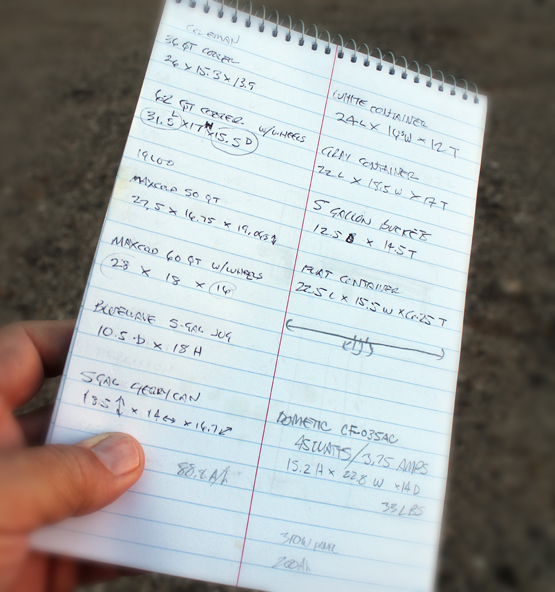 COLEMAN
36 QT COOLER
26 x 15.3 x 13.9
62 QT COOLER W/WHEELS
31.5 L x 17 W x 15.5 D
IGLOO
MAXCOLD 50 QT
27.5 x 16.75 x
MAXCOLD 60 QT W/WHEELS
28 x 18 x
5-GAL JUG
10.5 D x 18 H
5 GAL JERRY CAN
18.5 ↕ x 14 ↔ x 16.7 ⤢
WHITE CONTAINER
24 L x W x 12 T
GRAY CONTAINER
22 L x 15.5 W x 17 T
5 GALLON BUCKET
12.5 x 14.5 T
FLAT CONTAINER
22.5 L x 15.5 W x 6.25 T
DOMETIC
45 WATTS/3.75 AMPS
15.2 H x 22.8 W x 14 D
33 LBS
310W
200Ah